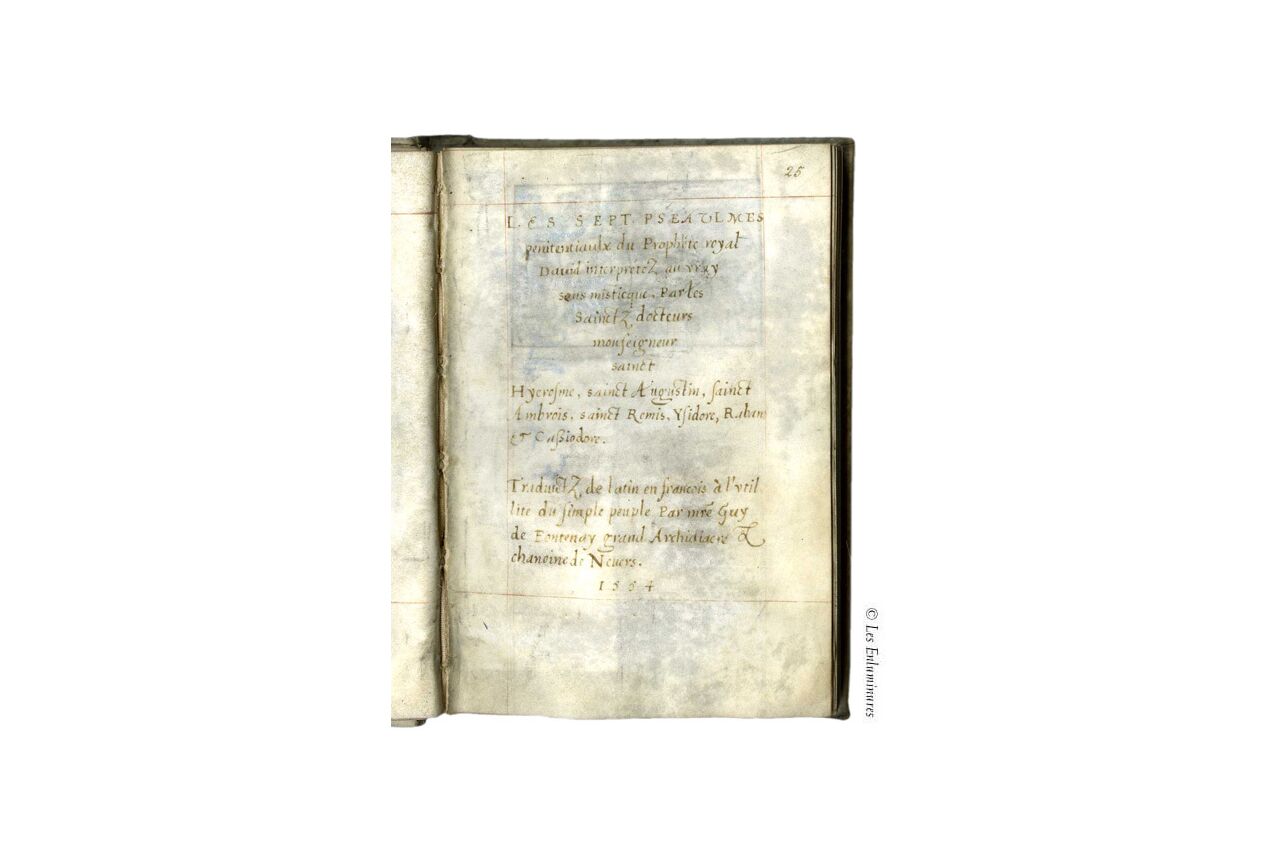 25
LES SEPT PSEAULMES
penitentiaulx du Prophete royal
David interpretez au vray
sens misticque, Par les
Sainctz docteurs
monseigneur
sainct
Hyerosme, sainct Augustin, sainct
Ambrois, sainct Remis, Ysidore, Raban
& Cassiodore.
Traduictz de latin en francois à l'util
lite du simple peuple Par mre Guy
de Fontenay grand Archidiacre &
chanoine de Nevers.
1554
© Les Enluminures